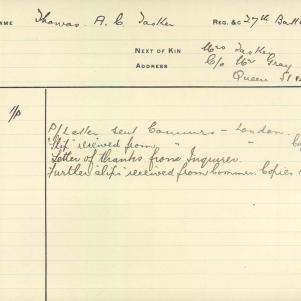 NAME Thomas A. C. Tasker REG. &C 27th Batt
NEXT OF KIN Mrs Tasker
ADDRESS C/o Mr Gray
Queen St
P/Letter sent Commrs - London.
"Slip" received from " "
Letter of thanks from Inquirer.
Further slips received from Commr. Copies